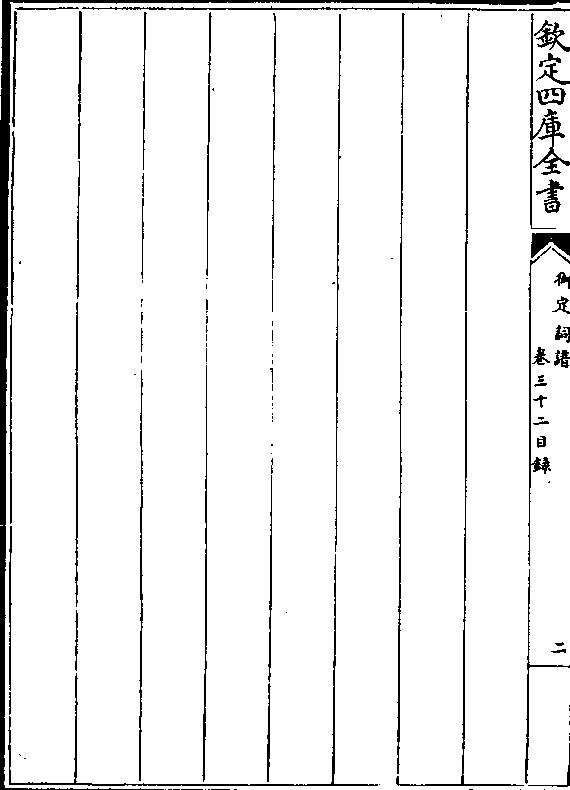 欽定四庫全書
御定詞譜
卷三十二目錄
二